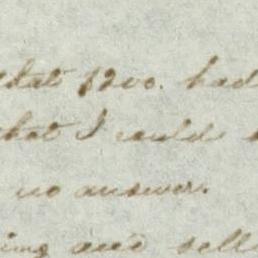 that $200. had
that I could
no answer.
ing and sell